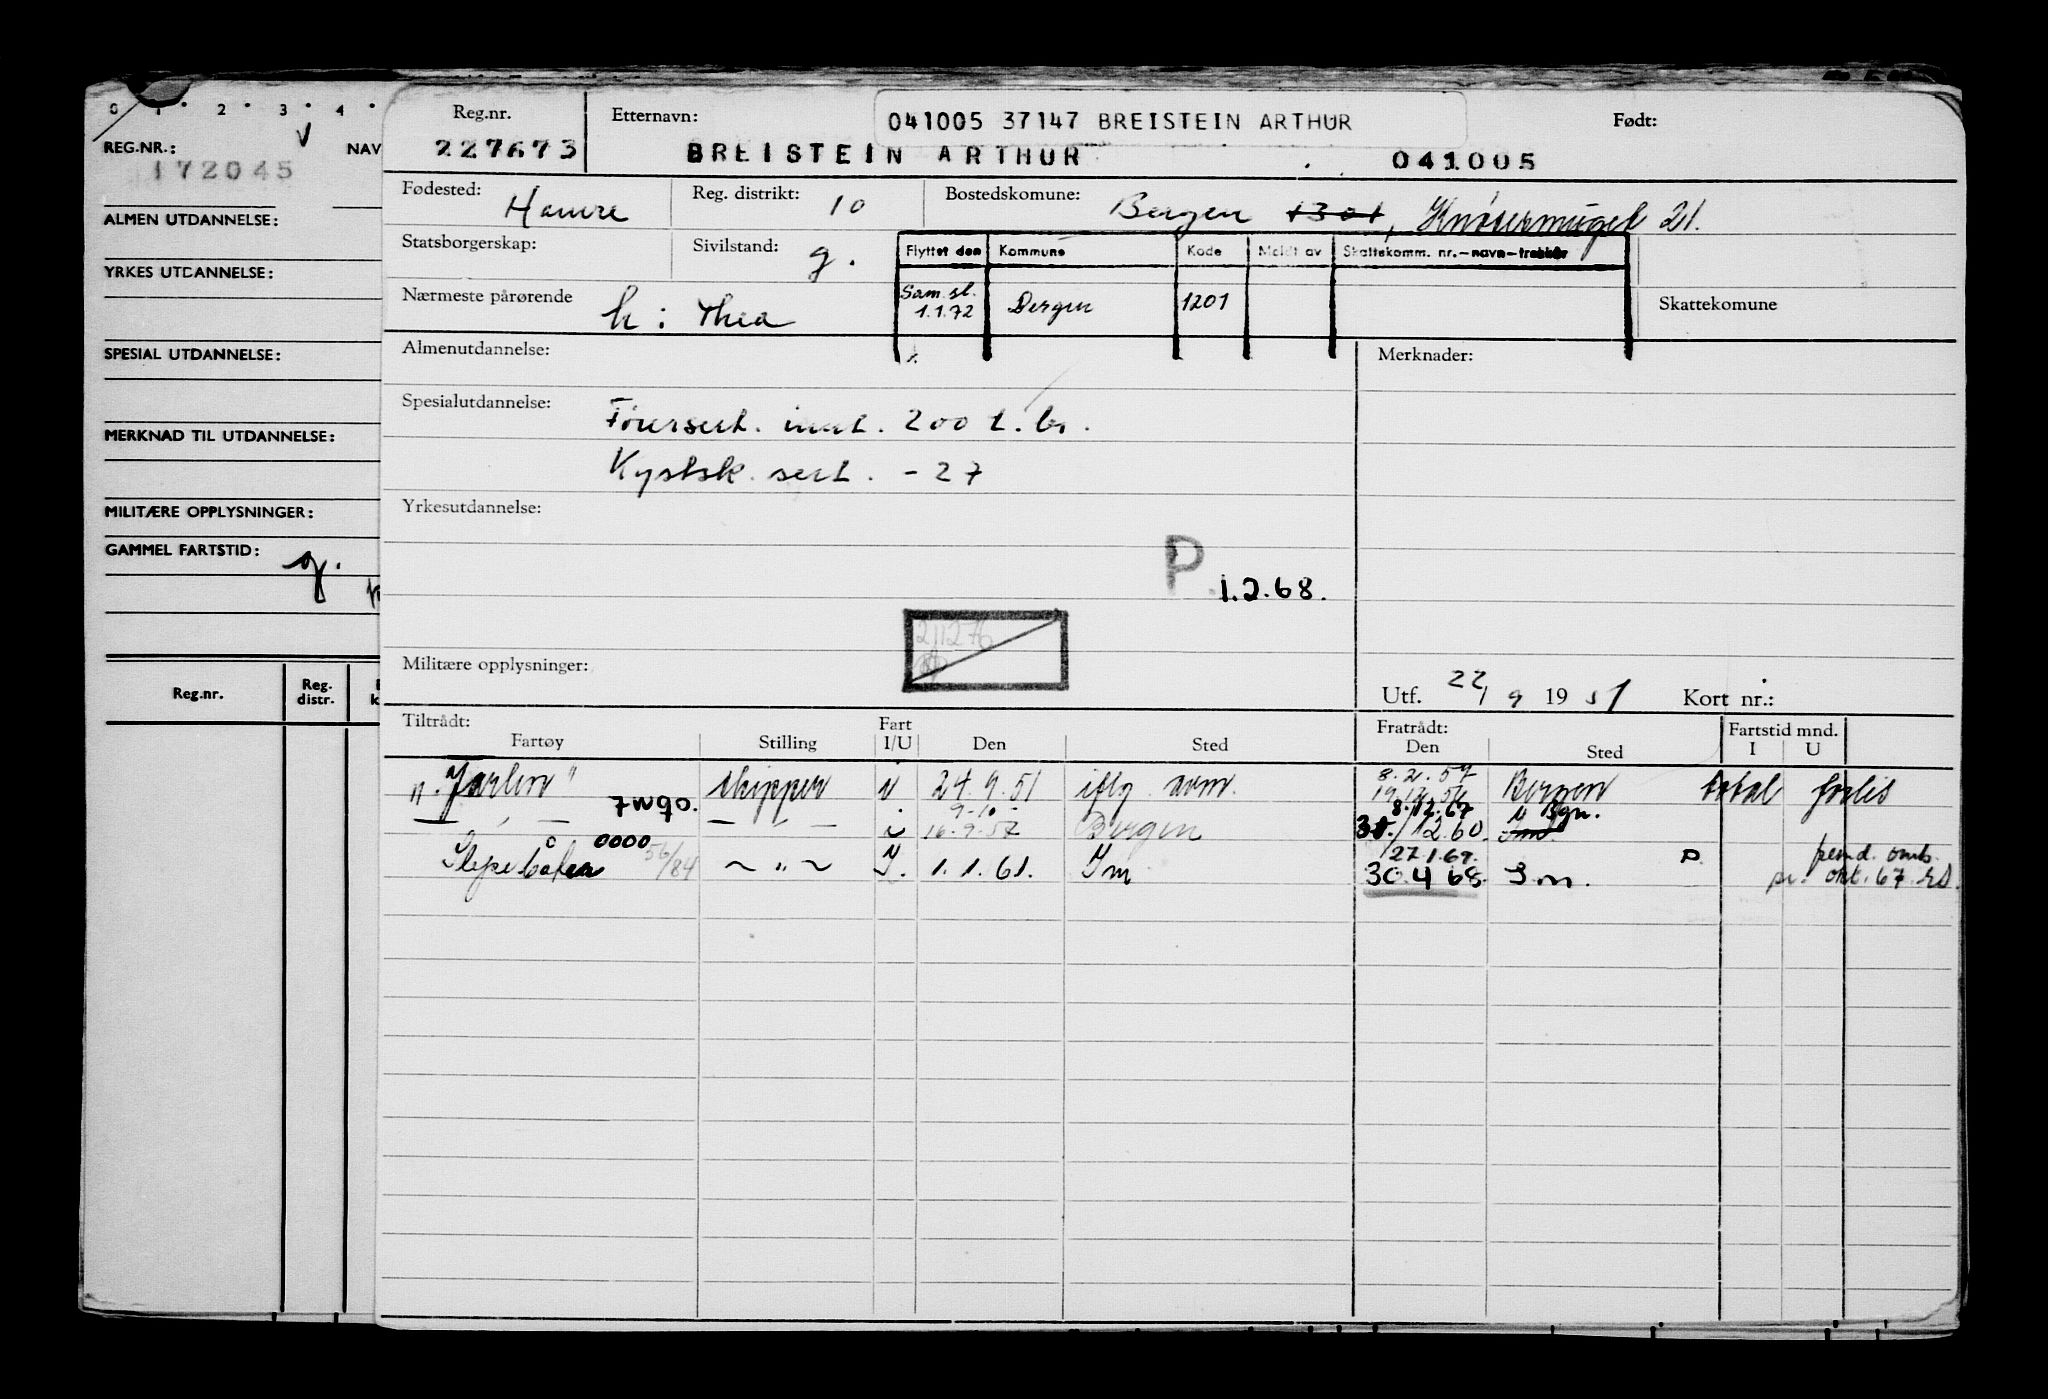 0 1 2 3 4
REG.NR.: V NAV
172045
ALMEN UTDANNELSE:
YRKES UTDANNELSE:
SPESIAL UTDANNELSE:
MERKNAD TIL UTDANNELSE:
MILITÆRE OPPLYSNINGER:
GAMMEL FARTSTID: g.
Reg.nr. Reg. distr.
Reg.nr. Etternavn: 041005 37147 BREISTEIN ARTHUR Født:
227673 BREISTEIN ARTHUR 041005
Fødested: Hamre Reg. distrikt: 10 Bostedskomune: Bergen 1301, 21.
Statsborgerskap: Sivilstand: g. Flyttet den Kommune Kode Meldt av Skattekomm. nr.-navn-trekkår
Nærmeste pårørende h: Thea Sam.sl. 1.1.72 Bergen 1201 Skattekomune
Almenutdannelse: Merknader:
Spesialutdannelse: Førersert. innt. 200 t. br.
Kystsk. sert. - 27
Yrkesutdannelse:
P 1.2.68.
Militære opplysninger:
Utf. 22/9 1951 Kort nr.:
Tiltrådt: Fart Fratrådt: Fartstid mnd.
Fartøy Stilling I/U Den Sted Den Sted I U
"Jarlin" skipper i 24.9.51 iflg. 8.2.57 Bergen total forlis
7wgo. 9-10 19.12.56
— " — — " — i 16.9.57 Bergen 8.12.67 Bgn.
31/12.60.
0000 56/84 ~ " ~ I. 1.1.61. Im 27.1.69. P
30.4 68. Im. okt. 67